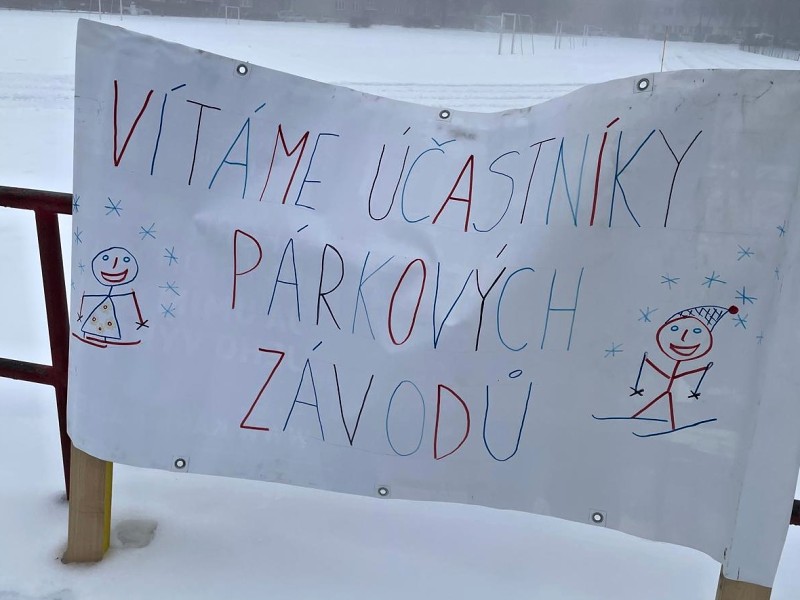 VÍTÁME ÚČASTNÍKY
PÁRKOVÝCH
ZÁVODŮ